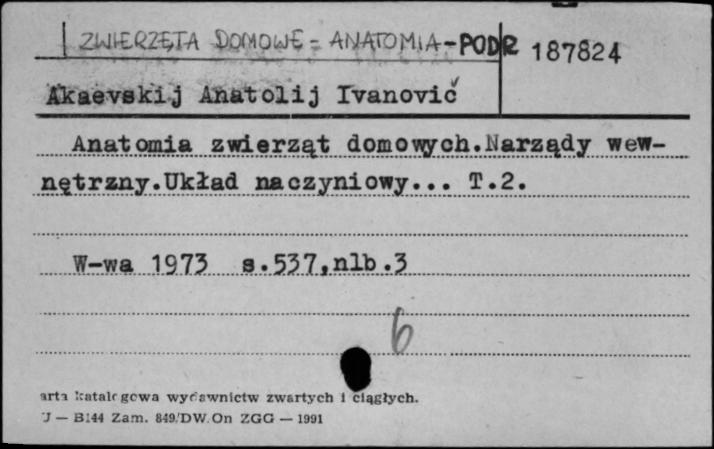 ZWIERZĘTA DOMOWE - ANATOMIA - PODR 187824
Akaevskij Anatolij Ivanovič
Anatomia zwierząt domowych.Narządy wew-
nętrzny.Układ naczyniowy... T.2.
W-wa 1973 s.537,nlb.3
6
arta katalogowa wydawnictw zwartych i ciągłych.
U — B144 Zam. 849/DW.On ZGG — 1991